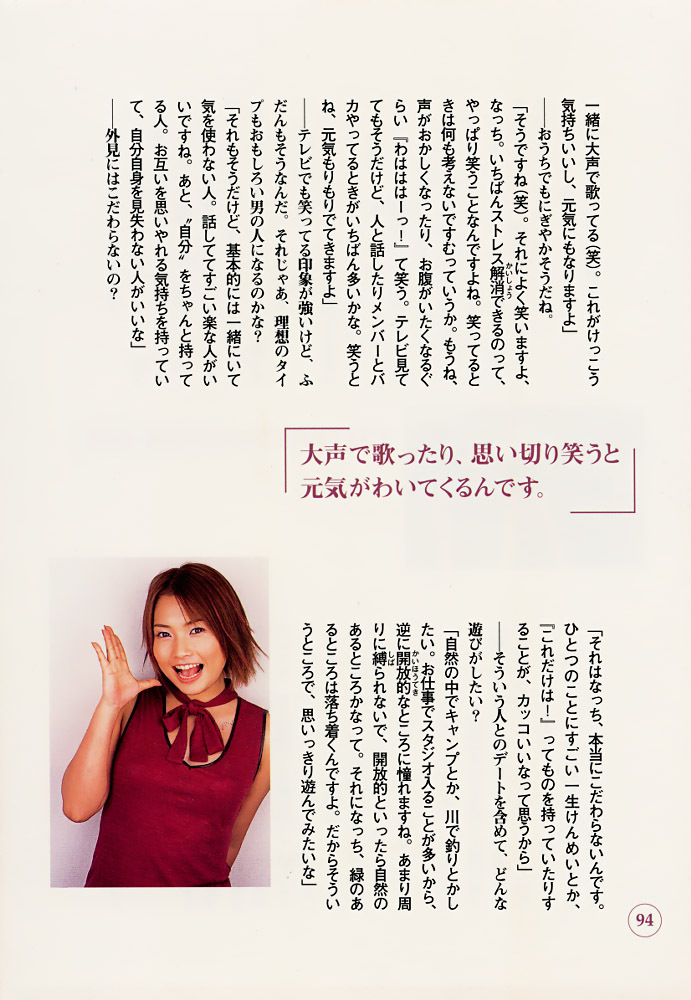 一緒に大声で歌ってる（笑）。これがけっこう
気持ちいいし、元気にもなりますよ」
――おうちでもにぎやかそうだね。
「そうですね（笑）。それによく笑いますよ、
なっち。いちばんストレス解消できるのって、
かいしょう
やっぱり笑うことなんですよね。笑ってると
きは何も考えないですむっていうか。もうね、
声がおかしくなったり、お腹がいたくなるぐ
らい『わはははーっ！』て笑う。テレビ見て
てもそうだけど、人と話したりメンバーとバ
カやってるときがいちばん多いかな。笑うと
ね、元気もりもりでてきますよ」
――テレビでも笑ってる印象が強いけど、ふ
だんもそうなんだ。それじゃあ、理想のタイ
プもおもしろい男の人になるのかな？
「それもそうだけど、基本的には一緒にいて
気を使わない人。話しててすごい楽な人がい
いですね。あと、〝自分〟をちゃんと持って
る人。お互いを思いやれる気持ちを持ってい
て、自分自身を見失わない人がいいな」
――外見にはこだわらないの？
大声で歌ったり、思い切り笑うと
元気がわいてくるんです。
「それはなっち、本当にこだわらないんです。
ひとつのことにすごい一生けんめいとか、
『これだけは！』ってものを持っていたりす
ることが、カッコいいなって思うから」
――そういう人とのデートを含めて、どんな
遊びがしたい？
「自然の中でキャンプとか、川で釣りとかし
たい。お仕事でスタジオ入ることが多いから、
逆に開放的なところに憧れますね。あまり周
かいほうてき
りに縛られないで、開放的といったら自然の
しば
あるところかなって。それになっち、緑のあ
るところは落ち着くんですよ。だからそうい
うところで、思いっきり遊んでみたいな」
94